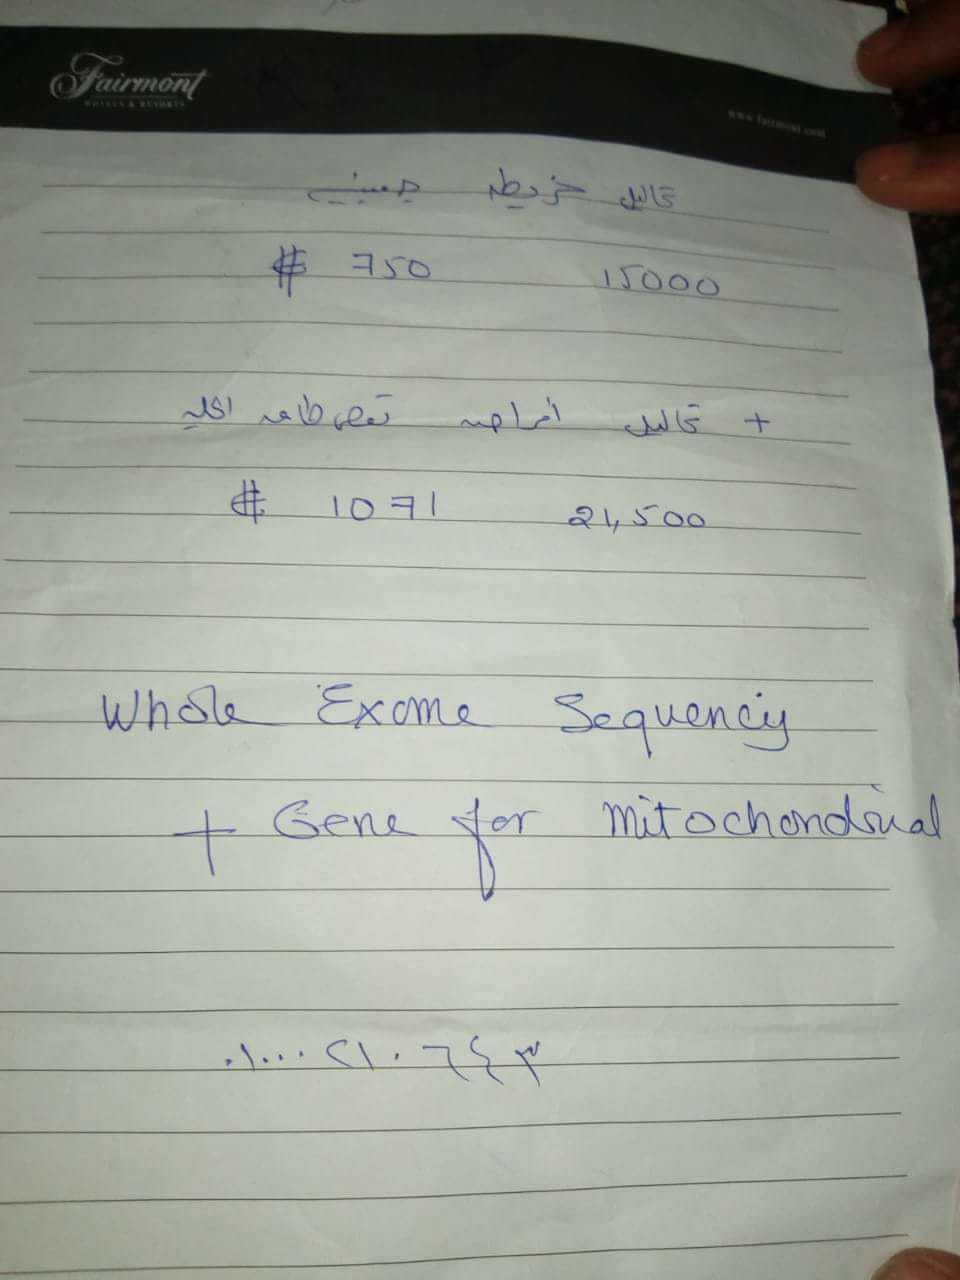 Fairmont
HOTELS & RESORTS
www.fairmont.com
تحاليل خريطة جينية
$ 750 15000
+ تحاليل امراض
$ 1071 21,500
Whole Exome Sequency
+ Gene for Mitochondrial
٠١٠٠٠٢١٠٦٤٣